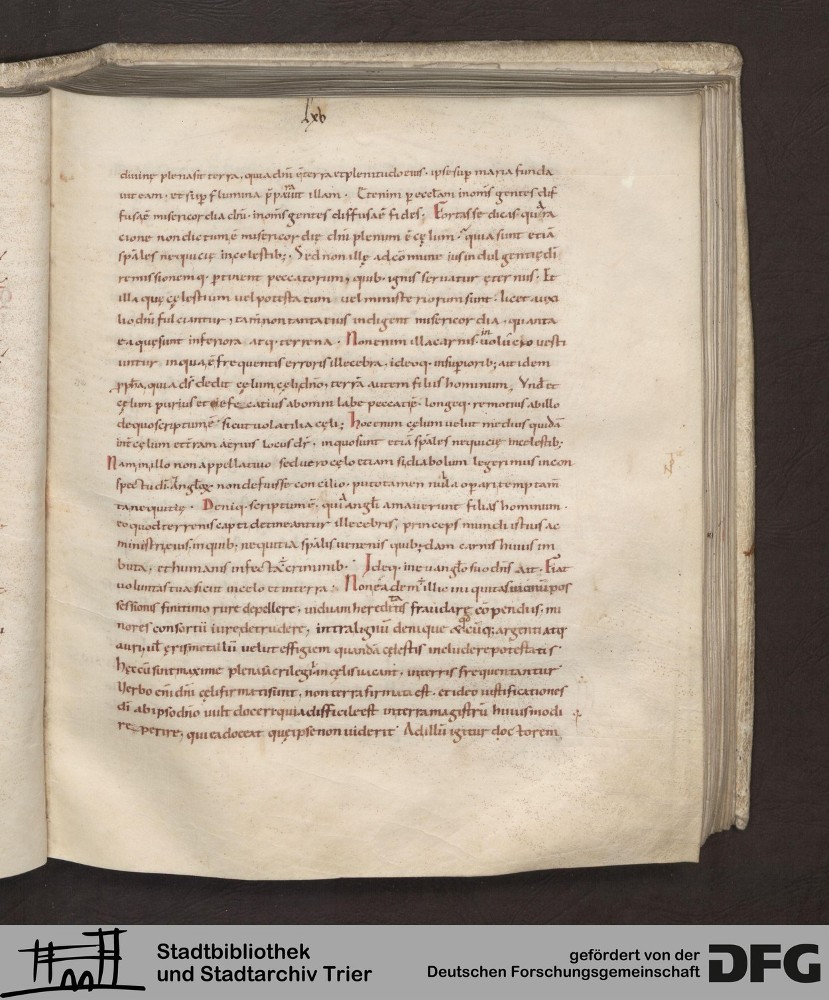 lxv
diuinę plena sit terra, quia dn̄i ē terra et plenitudo eius. ipse sup maria funda
uit eam. et sup flumina p̄parauit illam. Etenim p ecclam in oms gentes dif
fusa ē misericordia dn̄i. in oms gentes diffusa ē fides. Fortasse dicas. qua ra
cione non dictum ē misericordię dn̄i plenum ē cęlum. quia sunt etiā
spales nequicię in celestib; Sed non illę ad comune ius indulgentię di
remissionemq. ptinent peccatorum, quib. ignis seruatur ęternus. Et
illa quę cęlestium uel potestatum uel ministeriorum sunt. licet auxi
lio dn̄i fulciantur, tam̄ non tanta eius indigent misericordia. quanta
ea quę sunt inferiora atq. terrena. Non enim illa carnis inuolucro uesti
untur in qua ē frequentis erroris illecebra, ideoq. in supiorib; ait idem
ppha, quia ds̄ dedit cęlum cęli dn̄o, terrā autem filiis hominum. Vnde et
cęlum purius et defecatius ab omni labe peccati ē. longeq. remotius ab illo
de quo scriptum ē. sicut uolatilia cęli. hoc enim cęlum uelut medius quidā
int cęlum et tram aerius locus dr̄. in quo sunt etiā spales nequicię in celestib;
Nam in illo non appellatiuo sed uero cęlo etiam si diabolum legerimus in con
spectu di. Angłoꝝ. non defuisse concilio. puto tamen nulla opari temptam̄
ta nequitię. Deniq. scriptum ē. quia angłi amauerunt filias hominum.
eo quod terrenis capti detineantur illecebris, princeps mundi istius ac
ministri eius. in quib; nequitia spalis uenenis quibdam carnis huius im
buta, et humanis infecta ē criminib. Ideq. in euangłio suo dn̄s ait. Fiat
uoluntas tua sicut in celo et in terra. Non eadem illic iniquitas uicinū pos
sessionis finitimo rure depellere, uiduam hereditatis fraudare copendiis, mi
nores consortii iure detrudere, intra lignū denique argenti atq
auri, uł ęris metallū uelut effigiem quandā cęlestis includere potestatis
hęc cū sint maxime plena sacrilegii. in cęlis uacant. in terris frequentantur
Verbo enī dn̄i cęli firmati sunt, non terra firmata est. et ideo iustificationes
di ab ipso dn̄o uult doceri quia difficile est in terra magistrū huius modi
reperire, qui ea doceat quę ipse non uiderit Ad illū igitur doctorem
Stadtbibliothek
und Stadtarchiv Trier
gefördert von der
Deutschen Forschungsgemeinschaft
DFG